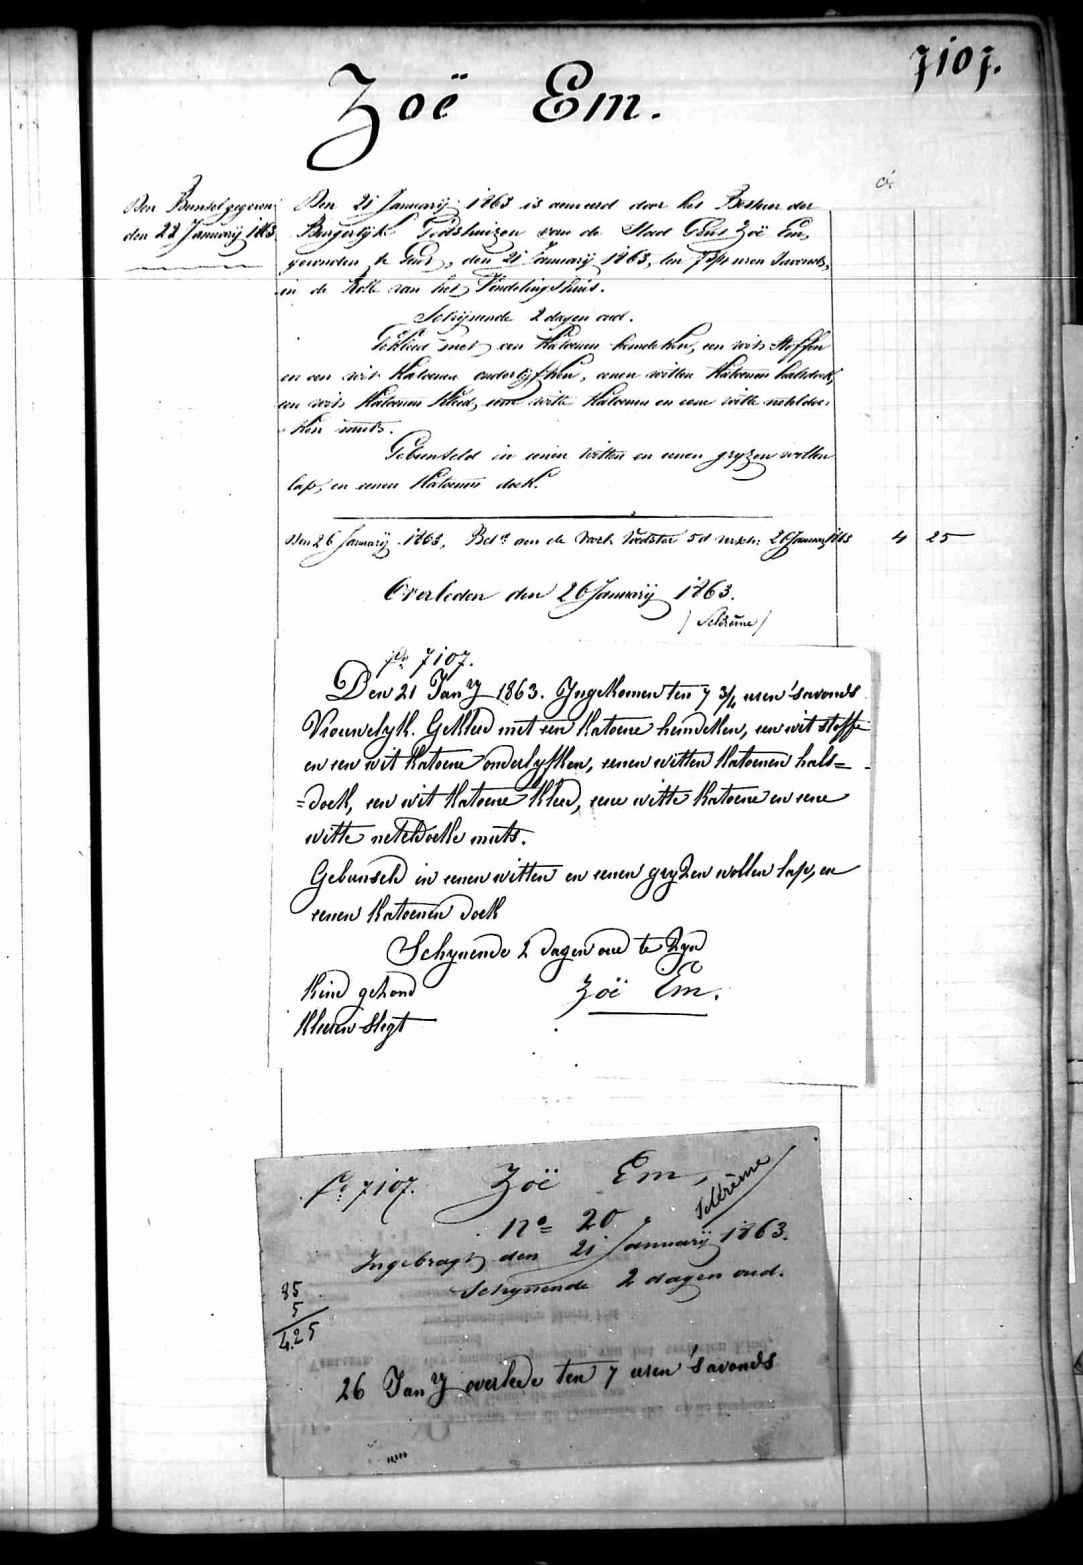 7107.
Zoë Em.
Den Bunsel gegeven
den 22 Januarij 1863
Den 21 Januarij 1863 is aenveerd door het Bestuer der
Burgerlijke Godshuizen van de Stad Gent Zoë Em,
gevonden te Gent, den 21 Januarij 1863, ten 7 3/4 uren 'savonds,
in de Rolle van het Vondelingshuis.
Schijnende 2 dagen oud.
Gekleed met een Katoenen hemdeken, een wit stoffen
en een wit Katoenen onderlijfken, eenen witten Katoenen halsdoek,
een wit Katoenen Kleed, eene witte Katoenen en eene witte neteldoe-
ken muts.
Gebunseld in eenen witten en eenen gryzen wollen
lap, en eenen Katoenen doek.
Den 26 Januarij 1863, Bet. aen de 5 d 26 Januarij 1863 4 25
Overleden den 26 Januarij 1863.
(Scléreme)
Fo. 7107.
Den 21 Jany 1863. Ingekomen ten 7 3/4 uren 'savonds
Vrouwelyk. Gekleed met een Katoene hemdeken, een wit stoffe
en een wit Katoene onderlyfken, eenen witten Katoenen hals=
=doek, een wit Katoene Kleed, eene witte Katoene en eene
witte neteldoeke muts.
Gebunseld in eenen witten en eenen gryzen wollen lap, en
eenen Katoenen doek
Schynende 2 dagen oud te Zyn
Kind gezond Zoë Em.
Kleeren slegt
Fo. 7107. Zoë Em,
Scléreme
No= 20
Ingebragt den 21 Januarij 1863.
Schynende 2 dagen oud.
85
5
4.25
26 Jany overlede ten 7 uren 'savonds